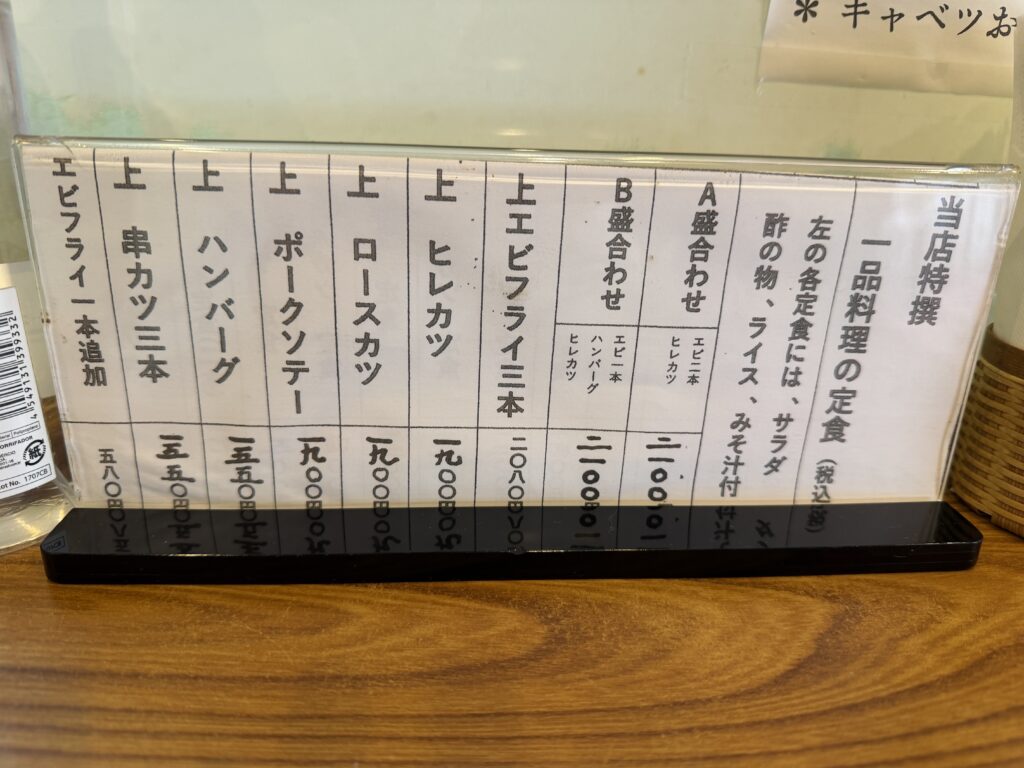 ＊ キャベツお
当店特撰
一品料理の定食（税込
左の各定食には、サラダ
酢の物、ライス、みそ汁付
A盛合わせ
エビ二本
ヒレカツ
二一〇〇
B盛合わせ
エビ一本
ハンバーグ
ヒレカツ
二一〇〇
上エビフライ三本
二〇八〇
上 ヒレカツ
一九〇〇
上 ロースカツ
一九〇〇
上 ポークソテー
一九〇〇
上 ハンバーグ
一五五〇
上 串カツ三本
一五五〇
エビフライ一本追加
五八〇
4 549131 399332
紙
Lot No. 1707CB